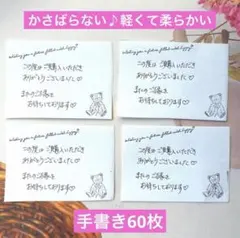 かさばらない♪軽くて柔らかい
この度はご購入いただき
ありがとうございました♡
またのご縁を
お待ちしております♡
この度はご購入いただき
ありがとうございました♡
またのご縁を
お待ちしております♡
この度はご購入いただき
ありがとうございました♡
またのご縁を
お待ちしております♡
この度はご購入いただき
ありがとうございました♡
またのご縁を
お待ちしております♡
手書き60枚